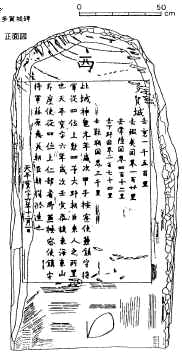 0 50
cm
多賀城碑
正面図
西
多賀城
去京一千五百里
去蝦夷國界一百廿里
去常陸國界四百十二里
去下野國界二百七十四里
去靺鞨國界三千里
此城神龜元年歳次甲子按察使兼鎭守將
軍從四位上勳四等大野朝臣東人之所置
也天平寶字六年歳次壬寅參議東海東山
節度使從四位上仁部省卿兼按察使鎭守
將軍藤原惠美朝臣朝獦修造也
天平寶字六年十二月一日